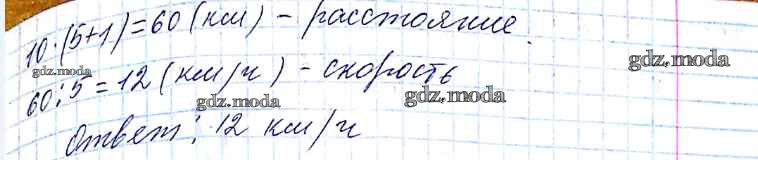 10·(5+1)=60 (км) - расстояние.
gdz.moda
gdz.moda
60:5=12 (км/ч) - скорость
gdz.moda
gdz.moda
Ответ: 12 км/ч